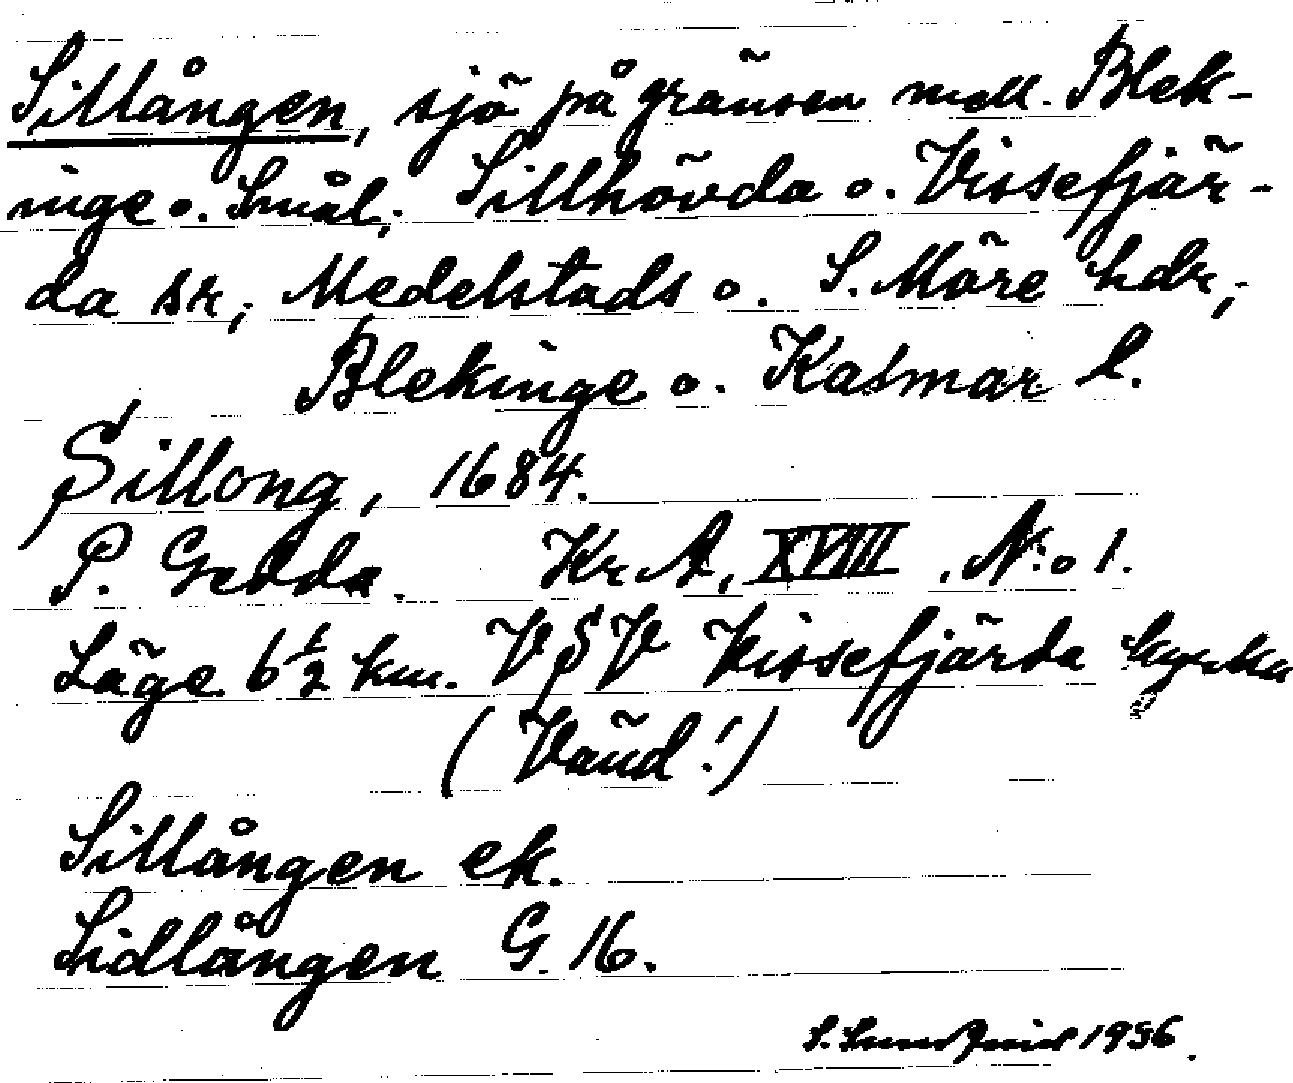 Sillången, sjö på gränsen mell. Blek-
inge o. Smål. Sillhövda o. Vissefjär-
da sn, Medelstads o. S. Möre hdr,
Blekinge o. Kalmar l.
Sillong, 1684.
P. Gedda. Kr. A, XVIII, N:o 1.
Läge 6 1/2 km. VSV Vissefjärda kyrka
(Vänd!)
Sillången ek.
Sidlången G. 16.
S. 1956.